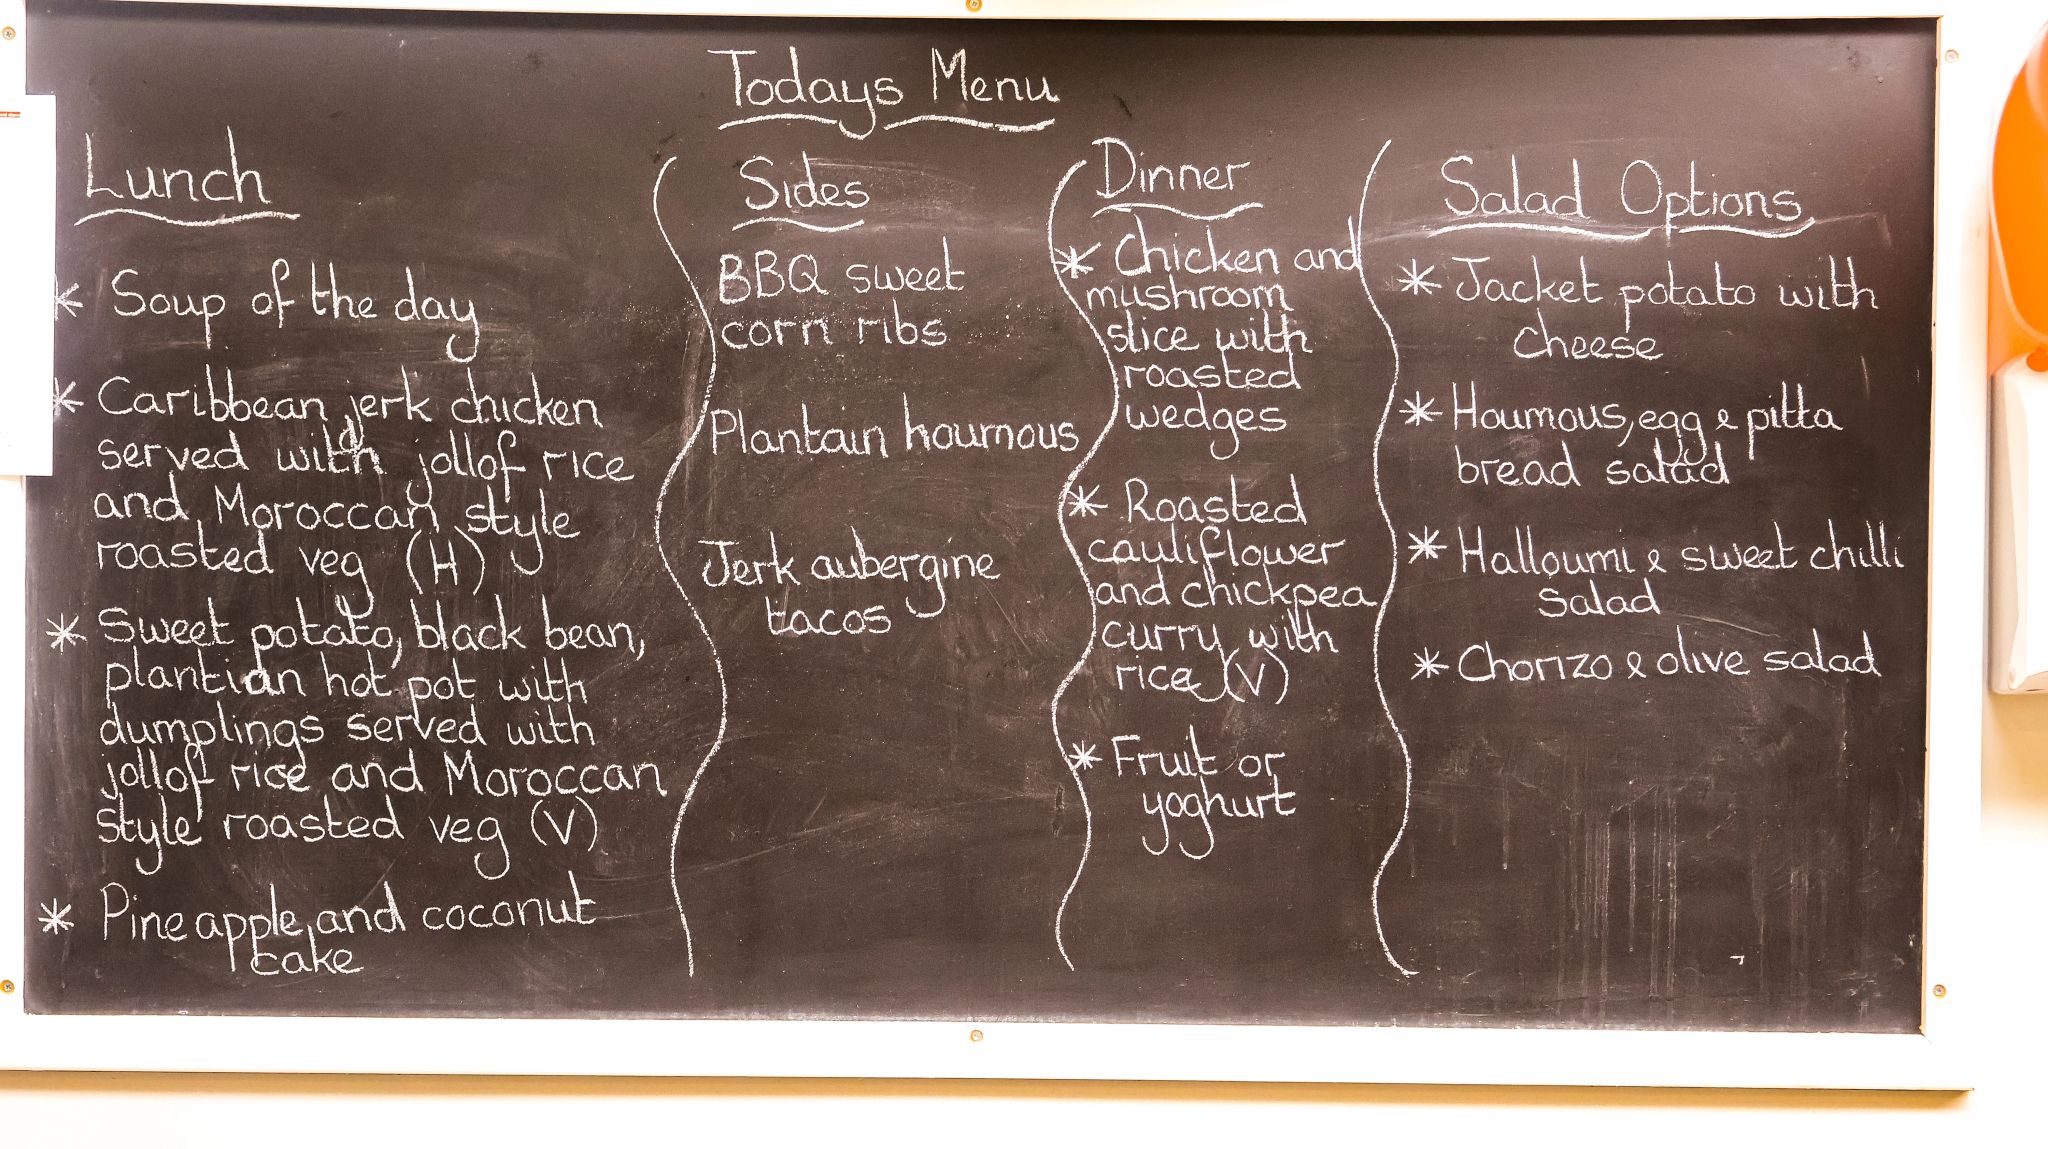 Todays Menu
Lunch
* Soup of the day
* Caribbean jerk chicken
served with jollof rice
and Moroccan style
roasted veg (H)
* Sweet potato, black bean,
plantian hot pot with
dumplings served with
jollof rice and Moroccan
style roasted veg (V)
* Pineapple and coconut
cake
Sides
BBQ sweet
corn ribs
Plantain houmous
Jerk aubergine
tacos
Dinner
* Chicken and
mushroom
slice with
roasted
wedges
* Roasted
cauliflower
and chickpea
curry with
rice (V)
* Fruit or
yoghurt
Salad Options
* Jacket potato with
cheese
* Houmous, egg & pitta
bread salad
* Halloumi & sweet chilli
salad
* Chorizo & olive salad